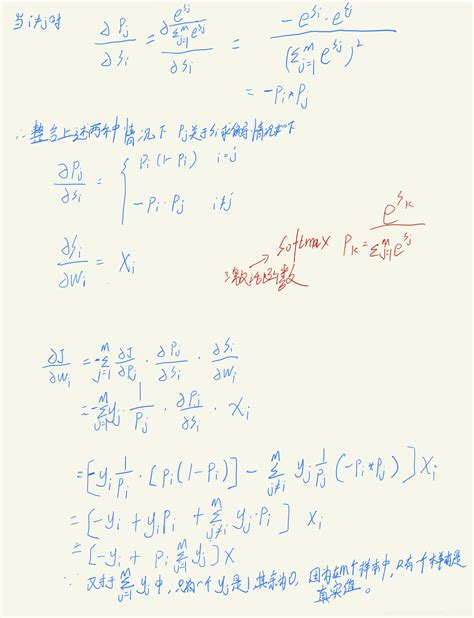 当i≠j时 ∂Pj/∂Si = ∂(e^Sj/Σ_{j=1}^m e^Sj)/∂Si = -e^Si·e^Sj/(Σ_{j=1}^m e^Sj)^2
= -Pi*Pj
∴ 整合上述两种情况下 Pj关于Si求解情况如下
∂Pj/∂Si = { Pi(1-Pi) i=j
-Pi·Pj i≠j
∂Si/∂Wi = Xi
softmax Pk = e^Sk/Σ_{j=1}^m e^Sj
激活函数
∂J/∂Wi = -Σ_{j=1}^m ∂J/∂Pj · ∂Pj/∂Si · ∂Si/∂Wi
= -Σ_{j=1}^m yj · 1/Pj · ∂Pj/∂Si · Xi
= [-yi 1/Pi · [Pi(1-Pi)] - Σ_{j≠i}^m yj 1/Pj (-Pi*Pj)] Xi
= [-yi + yiPi + Σ_{j≠i}^m yj·Pi] Xi
= [-yi + Pi Σ_{j=1}^m yj] X
∵ 对于 Σ_{j=1}^m yj 中, 只有一个yj是1,其余为0, 因为在m个样本中,只有一个样本是
真实值。